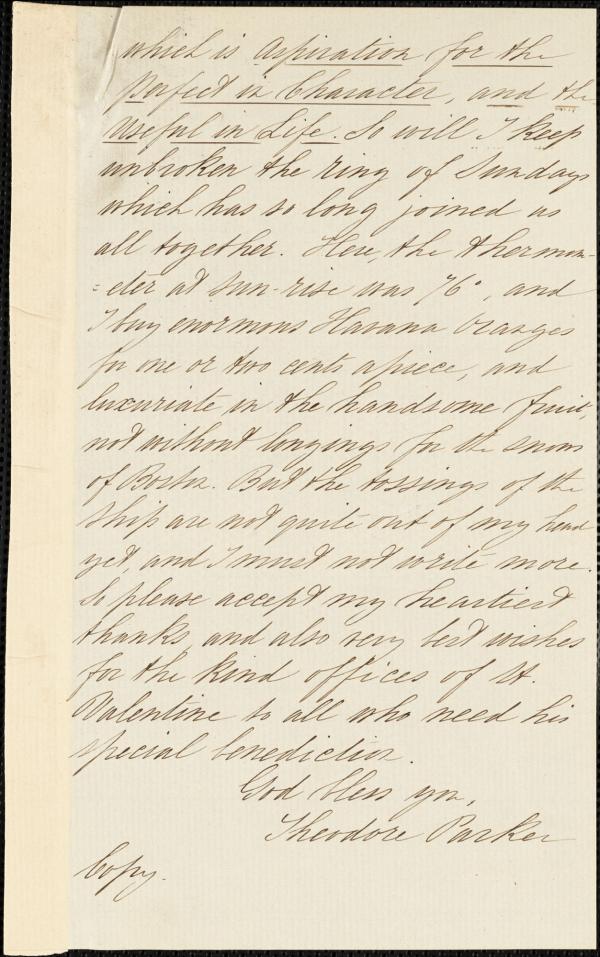 which is Aspiration for the
Perfect in Character, and the
Useful in Life. So will I keep
unbroken the ring of Sundays
which has so long joined us
all together. Here, the thermom-
=eter at sun-rise was 76°, and
I buy enormous Havana Oranges
for one or two cents apiece, and
luxuriate in the handsome fruit,
not without longings for the snows
of Boston. But the tossings of the
ship are not quite out of my head
yet, and I must not write more.
So please accept my heartiest
thanks, and also very best wishes
for the kind offices of St.
Valentine to all who need his
special benediction.
God bless you,
Theodore Parker
Copy.